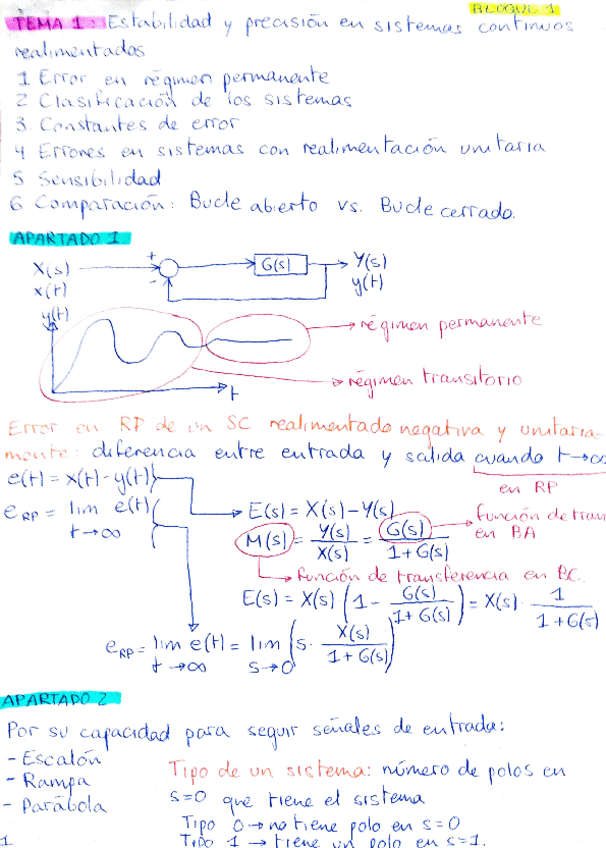 BLOQUE 1
TEMA 1: Estabilidad y precisión en sistemas continuos
realimentados
1 Error en régimen permanente
2 Clasificación de los sistemas
3 Constantes de error
4 Errores en sistemas con realimentación unitaria
5 Sensibilidad
6 Comparación: Bucle abierto vs. Bucle cerrado.
APARTADO 1
X(s) + G(s) Y(s)
x(t) - y(t)
y(t)
régimen permanente
t
régimen transitorio
Error en RP de un SC realimentado negativa y unitaria-
mente: diferencia entre entrada y salida cuando t→∞
en RP
e(t) = x(t) - y(t)
e_RP = lim e(t)
t→∞
E(s) = X(s) - Y(s)
M(s) = Y(s)/X(s) = G(s)/1+G(s)
función de tran
en BA
función de transferencia en BC.
E(s) = X(s) (1 - G(s)/1+G(s)) = X(s) · 1/1+G(s)
e_RP = lim e(t) = lim (s · X(s)/1+G(s))
t→∞ s→0
APARTADO 2
Por su capacidad para seguir señales de entrada:
- Escalón
- Rampa
- Parábola
Tipo de un sistema: número de polos en
s=0 que tiene el sistema
Tipo 0→no tiene polo en s=0
Tipo 1 → tiene un polo en s=1.
1